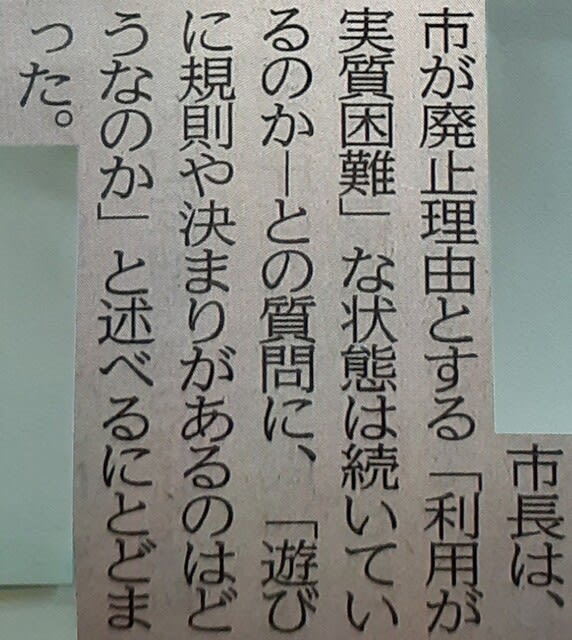 市長は、
市が廃止理由とする「利用が
実質困難」な状態は続いてい
るのか―との質問に、「遊び
に規則や決まりがあるのはど
うなのか」と述べるにとどま
った。